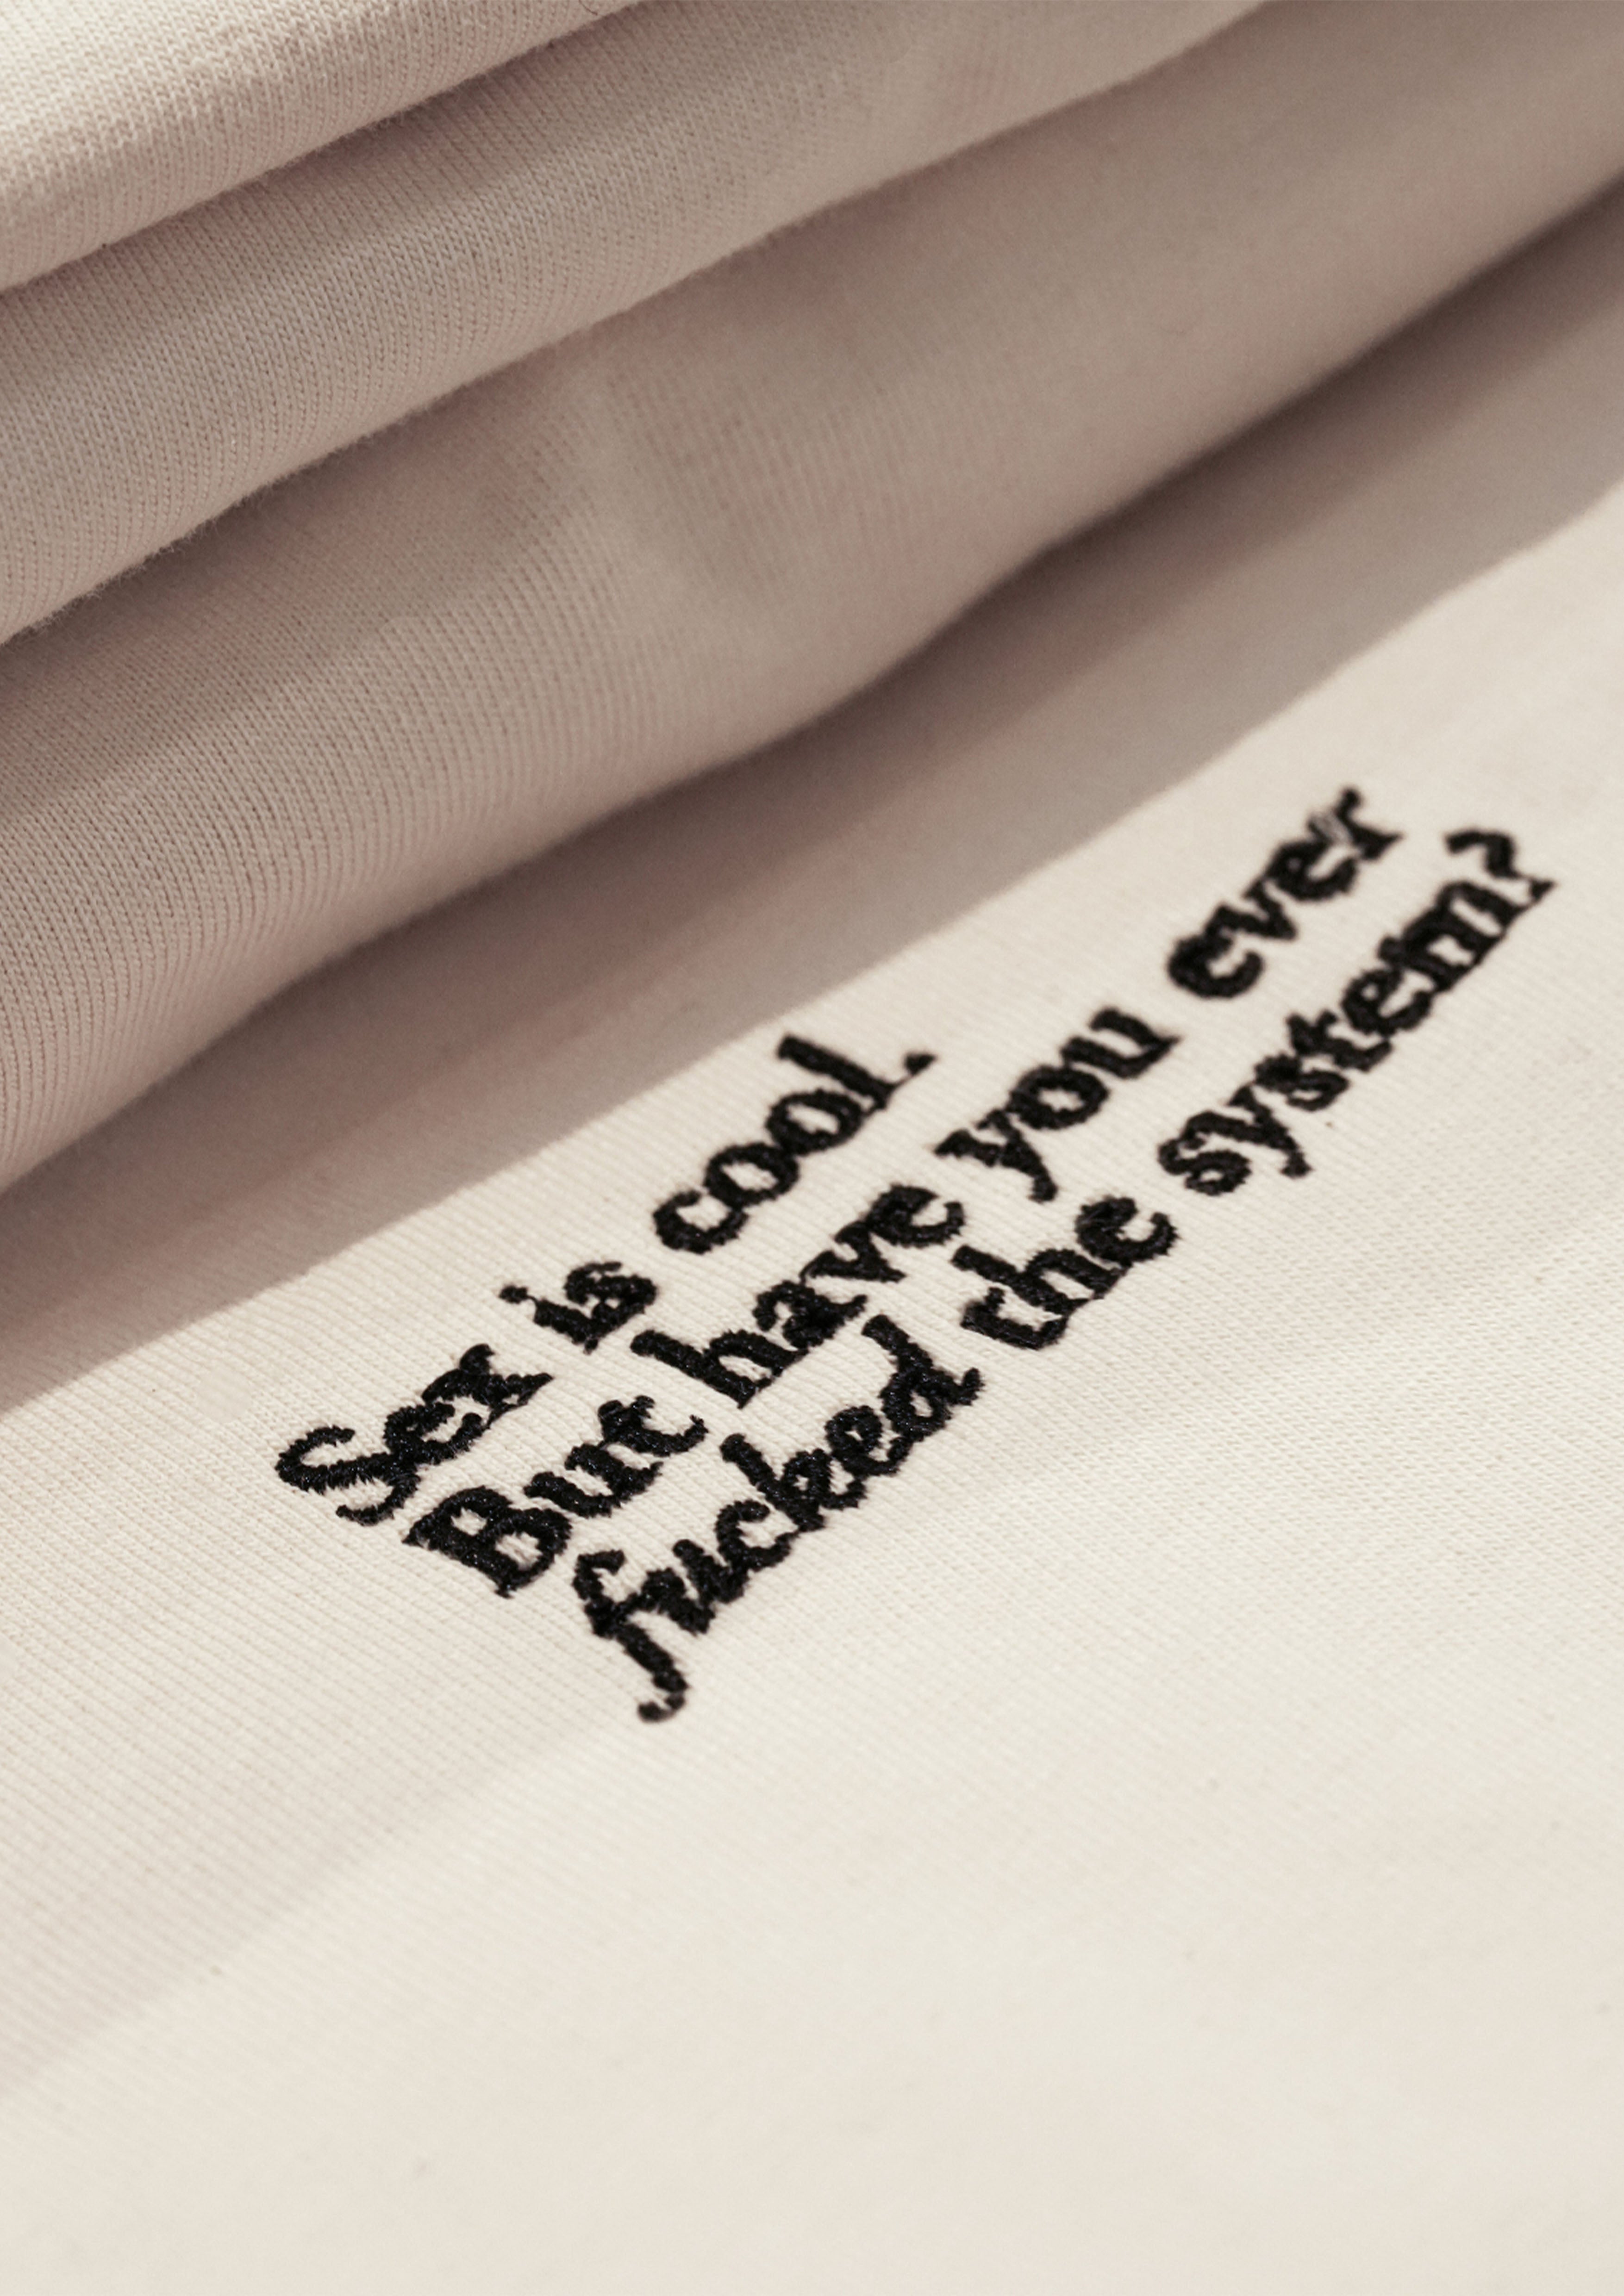 Sex is cool.
But have you ever
fucked the system?